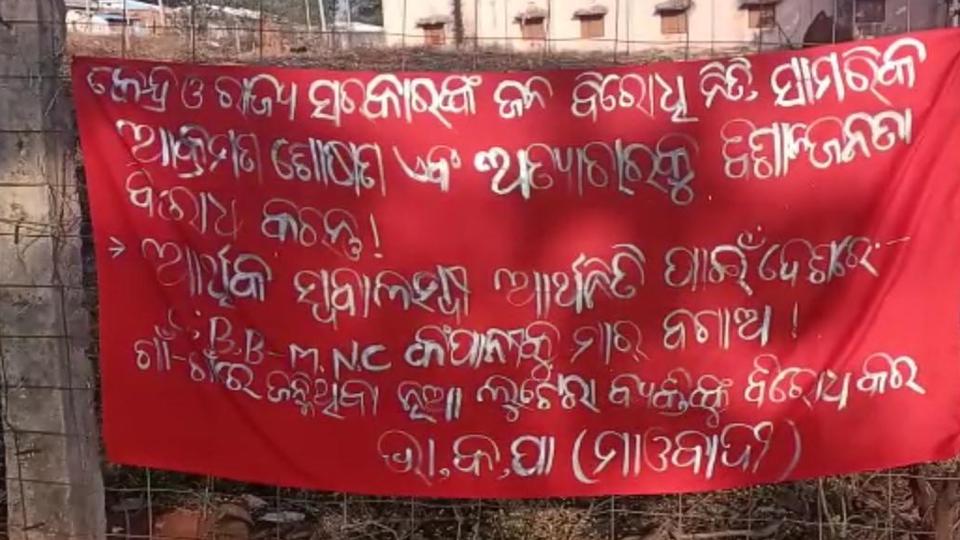 କେନ୍ଦ୍ର ଓ ରାଜ୍ୟ ସରକାରଙ୍କ ଜନ ବିରୋଧି ନିତି, ସାମରିକ
ଆକ୍ରମଣ ଶୋଷଣ ଏବଂ ଅତ୍ୟାଚାରକୁ
ବିରୋଧ କରନ୍ତୁ!
ଆର୍ଥିକ ସ୍ଵାବାଲମ୍ବୀ ଆର୍ଥନିତି ପାଇଁ ଦେଶରେ:-
C.B.B-M.N.C କଂପାନୀକୁ ମାର ବଗାଅ!
ଗାଁ-ଗାଁରେ ଜନ୍ମିଥିବା ନୂଆ ଲୁଟେରା ବ୍ୟକ୍ତିଙ୍କୁ ବିରୋଧ କର
ଭା,କ,ପା (ମାଓବାଦୀ)